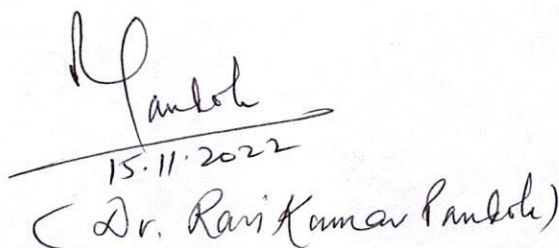 RPandoh
15.11.2022
(Dr. Ravi Kumar Pandoh)